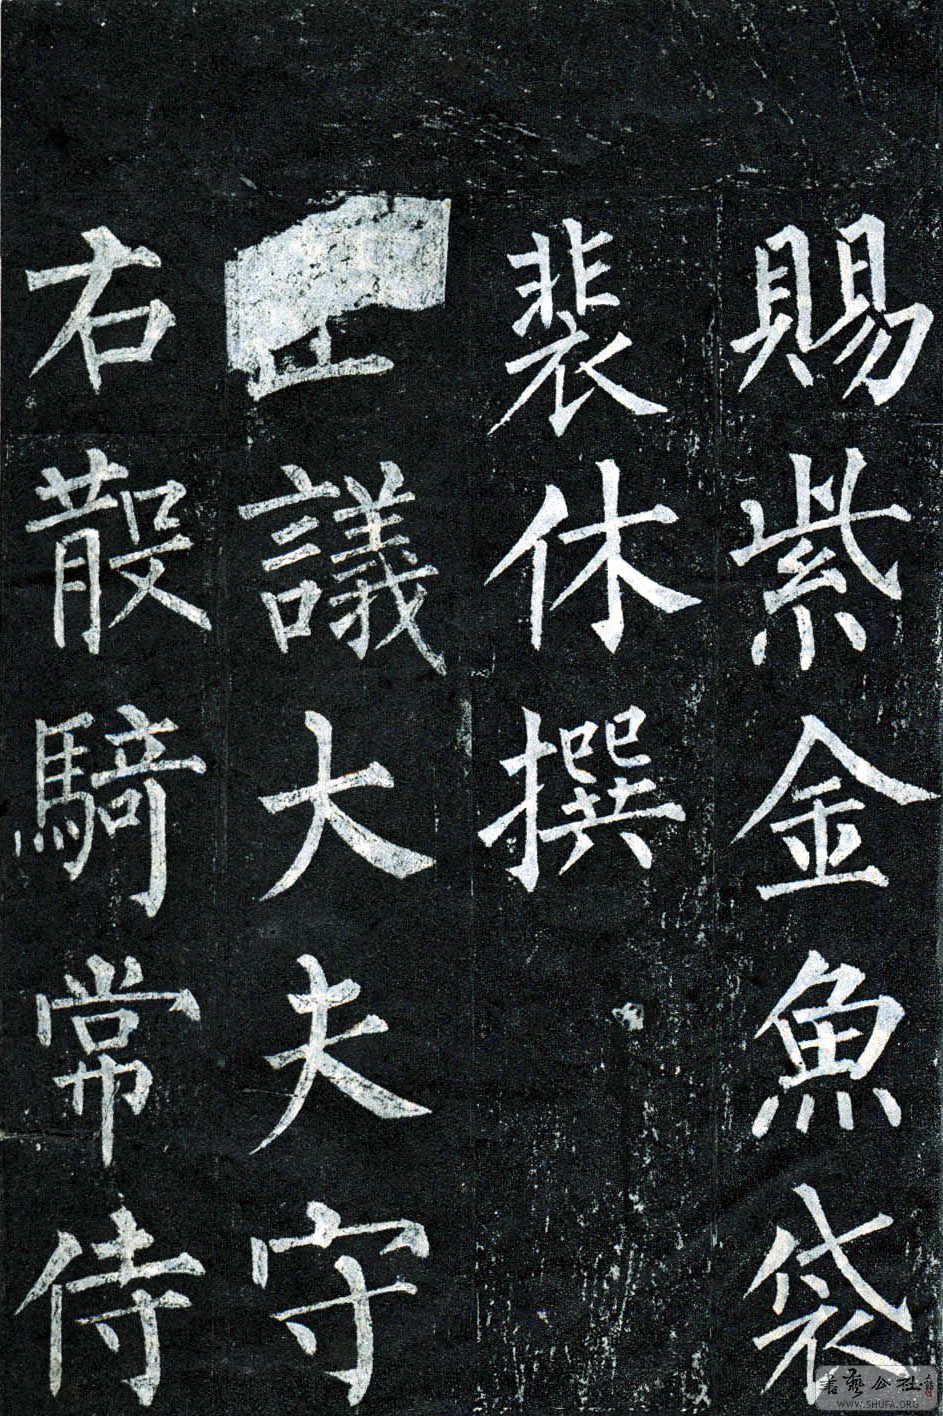 賜紫金魚袋
裴休撰
正議大夫守
右散騎常侍
書藝公社
WWW.SHUFA.ORG